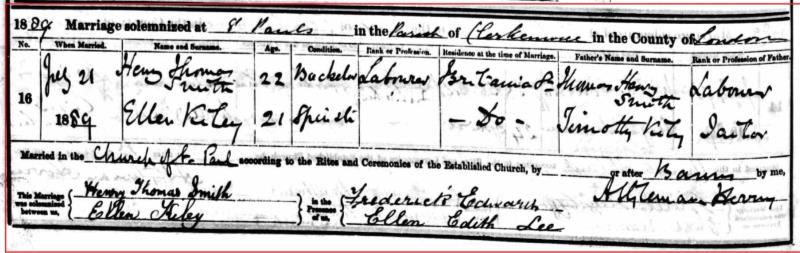 1889 Marriage solemnized at St Pauls in the Parish of Clerkenwell in the County of London
No. When Married. Name and Surname. Age. Condition. Rank or Profession. Residence at the time of Marriage. Father's Name and Surname. Rank or Profession of Father.
16 July 21 Henry Thomas Smith 22 Bachelor Labourer Britannia St Thomas Henry Smith Labourer
1889 Ellen Kiley 21 Spinster — Do — Timothy Kiley Tailor
Married in the Church of St Paul according to the Rites and Ceremonies of the Established Church, by or after Banns by me,
This Marriage was solemnized between us, Henry Thomas Smith in the Presence of us, Frederick Edward
Ellen Kiley Ellen Edith Lee